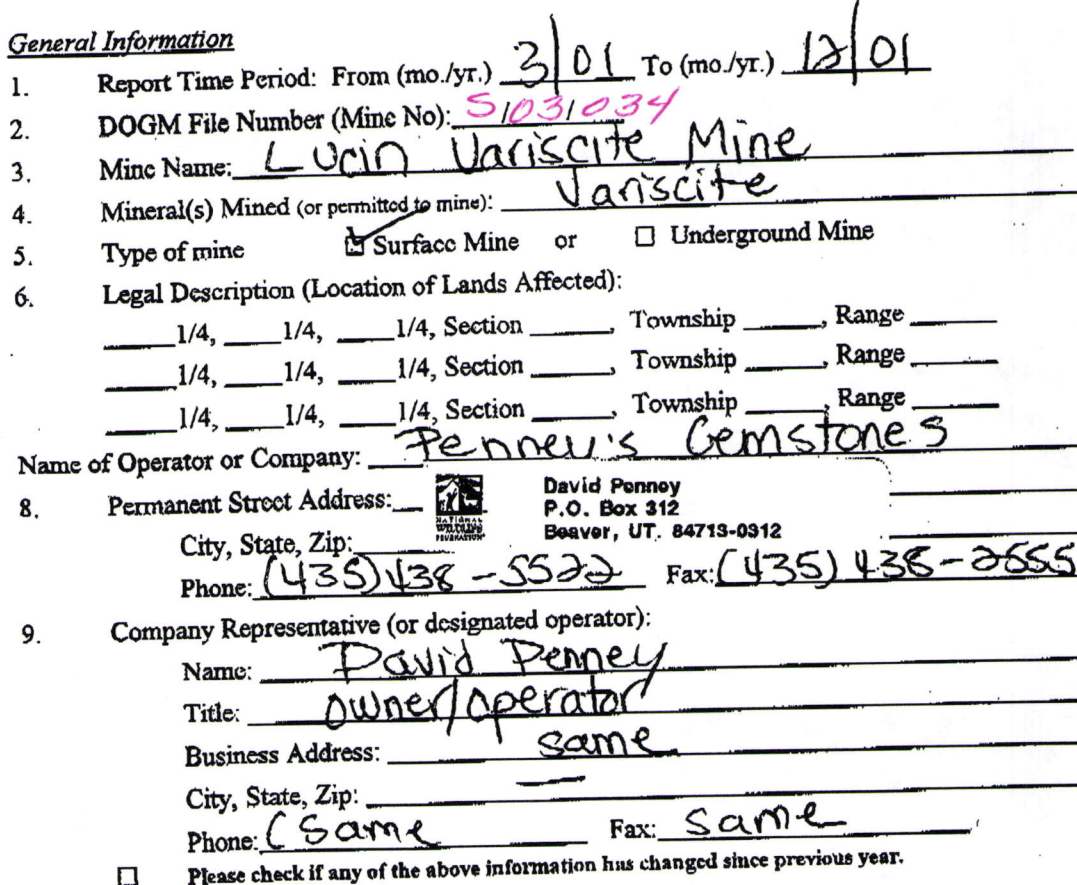 General Information
1. Report Time Period: From (mo./yr.) 3/01 To (mo./yr.) 12/01
2. DOGM File Number (Mine No): S/03/034
3. Mine Name: Lucin Variscite Mine
4. Mineral(s) Mined (or permitted to mine): Variscite
5. Type of mine ☑ Surface Mine or ☐ Underground Mine
6. Legal Description (Location of Lands Affected):
______1/4, _____1/4, _____1/4, Section _______, Township _______, Range _______
______1/4, _____1/4, _____1/4, Section _______, Township _______, Range _______
______1/4, _____1/4, _____1/4, Section _______, Township _______, Range _______
Name of Operator or Company: Penney's Gemstones
8. Permanent Street Address: David Penney
P.O. Box 312
NATIONAL WILDLIFE FEDERATION
City, State, Zip: Beaver, UT. 84713-0312
Phone: (435) 438-5522 Fax: (435) 438-2555
9. Company Representative (or designated operator):
Name: David Penney
Title: owner/operator
Business Address: same
City, State, Zip: —
Phone: (same Fax: same
☐ Please check if any of the above information has changed since previous year.